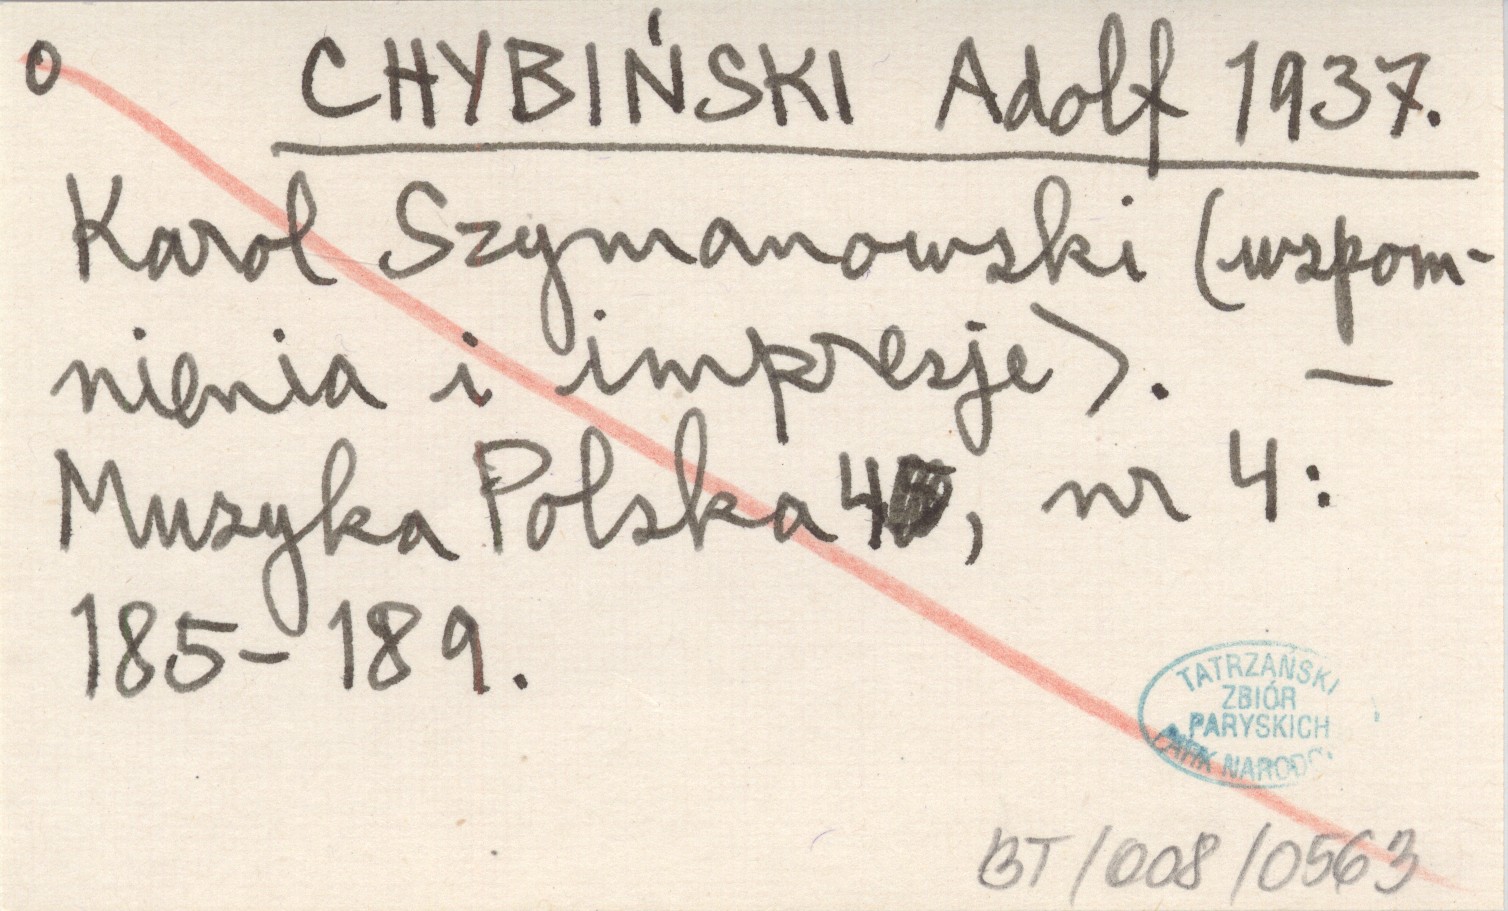 o CHYBIŃSKI Adolf 1937.
Karol Szymanowski (wspom-
nienia i impresje). —
Muzyka Polska 4, nr 4:
185-189.
TATRZAŃSKI
ZBIÓR
PARYSKICH
PARK NARODO
BT/008/0563